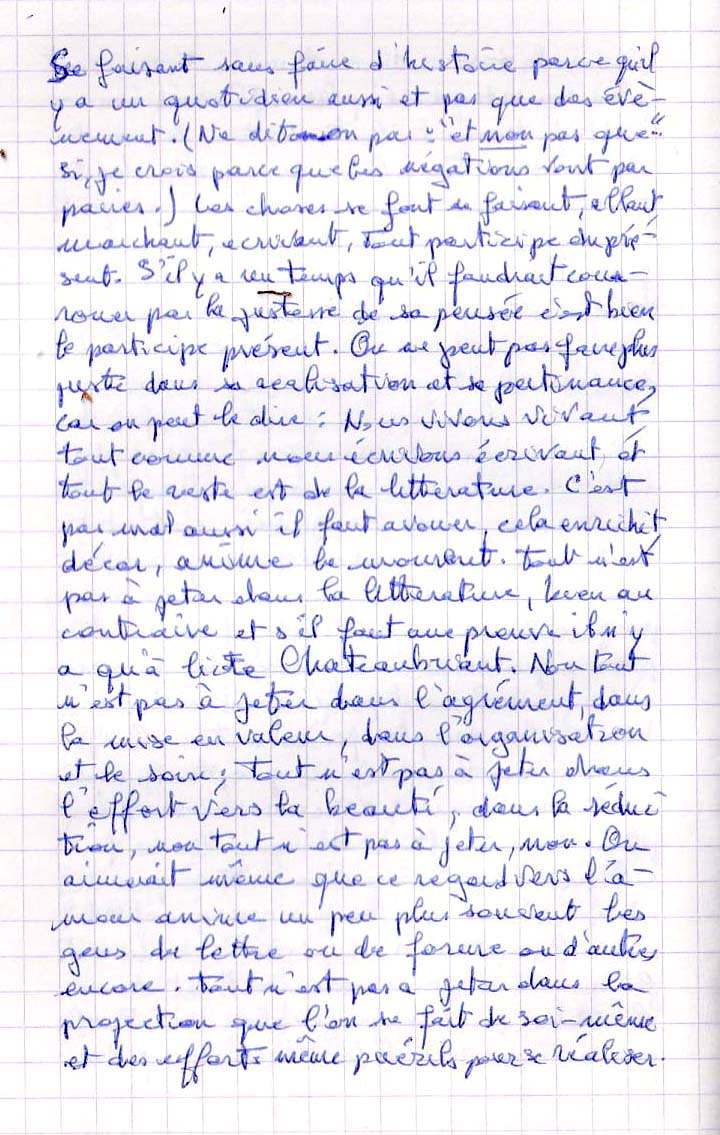 Se faisant sans faire d'histoire parce qu'il
y a un quotidien aussi et pas que des évè-
nement. (Ne dit on pas : "et non pas que"
si, je crois parce que les négations vont par
paires.) Les choses se font se faisant, allant
marchant, ecrivant, tout participe du pré-
sent. S'il y a un temps qu'il faudrait cou-
ronner par la justesse de sa pensée c'est bien
le participe présent. On ne peut pas faire plus
juste dans sa realisation et sa pertinance,
car on peut le dire : Nous vivons vivant
tout comme nous écrivons écrivant et
tout le reste est de la littérature. C'est
pas mal aussi il faut avouer, cela enrichit
décor, anime le mouvent. Tout n'est
pas à jeter dans la littérature, bien au
contraire et s'il faut une preuve il n'y
a qu'à lire Chateaubriant. Non tout
n'est pas à jeter dans l'agrément, dans
la mise en valeur, dans l'organisation
et le soin ; tout n'est pas à jeter dans
l'effort vers la beauté, dans la séduc
tion, non tout n'est pas à jeter, non. On
aimerait même que ce regard vers l'a-
mour anime un peu plus souvent les
gens de lettre ou de forme ou d'autres
encore. Tout n'est pas a jeter dans la
projection que l'on se fait de soi-même
et des efforts même puérils pour se réaliser.